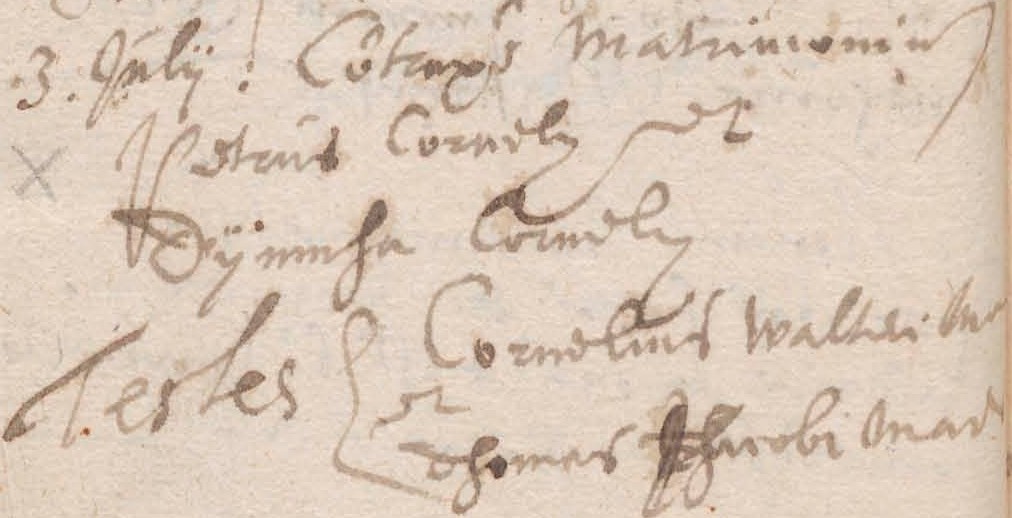 3. Julij: Cōtraxē Matrimoniū
Petrus Cornely et
Dijmmcha Cornely
Testes Cornelius Walteri
et
Thomas Jhacobi Mad